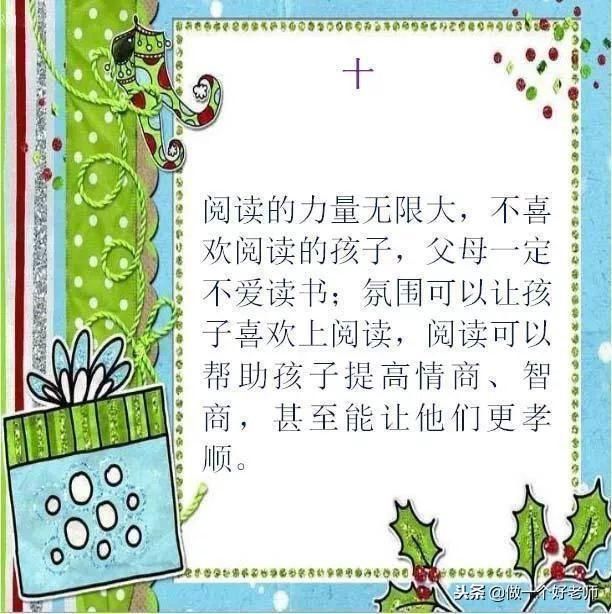 十
阅读的力量无限大，不喜
欢阅读的孩子，父母一定
不爱读书；氛围可以让孩
子喜欢上阅读，阅读可以
帮助孩子提高情商、智
商，甚至能让他们更孝
顺。
头条 @做一个好老师